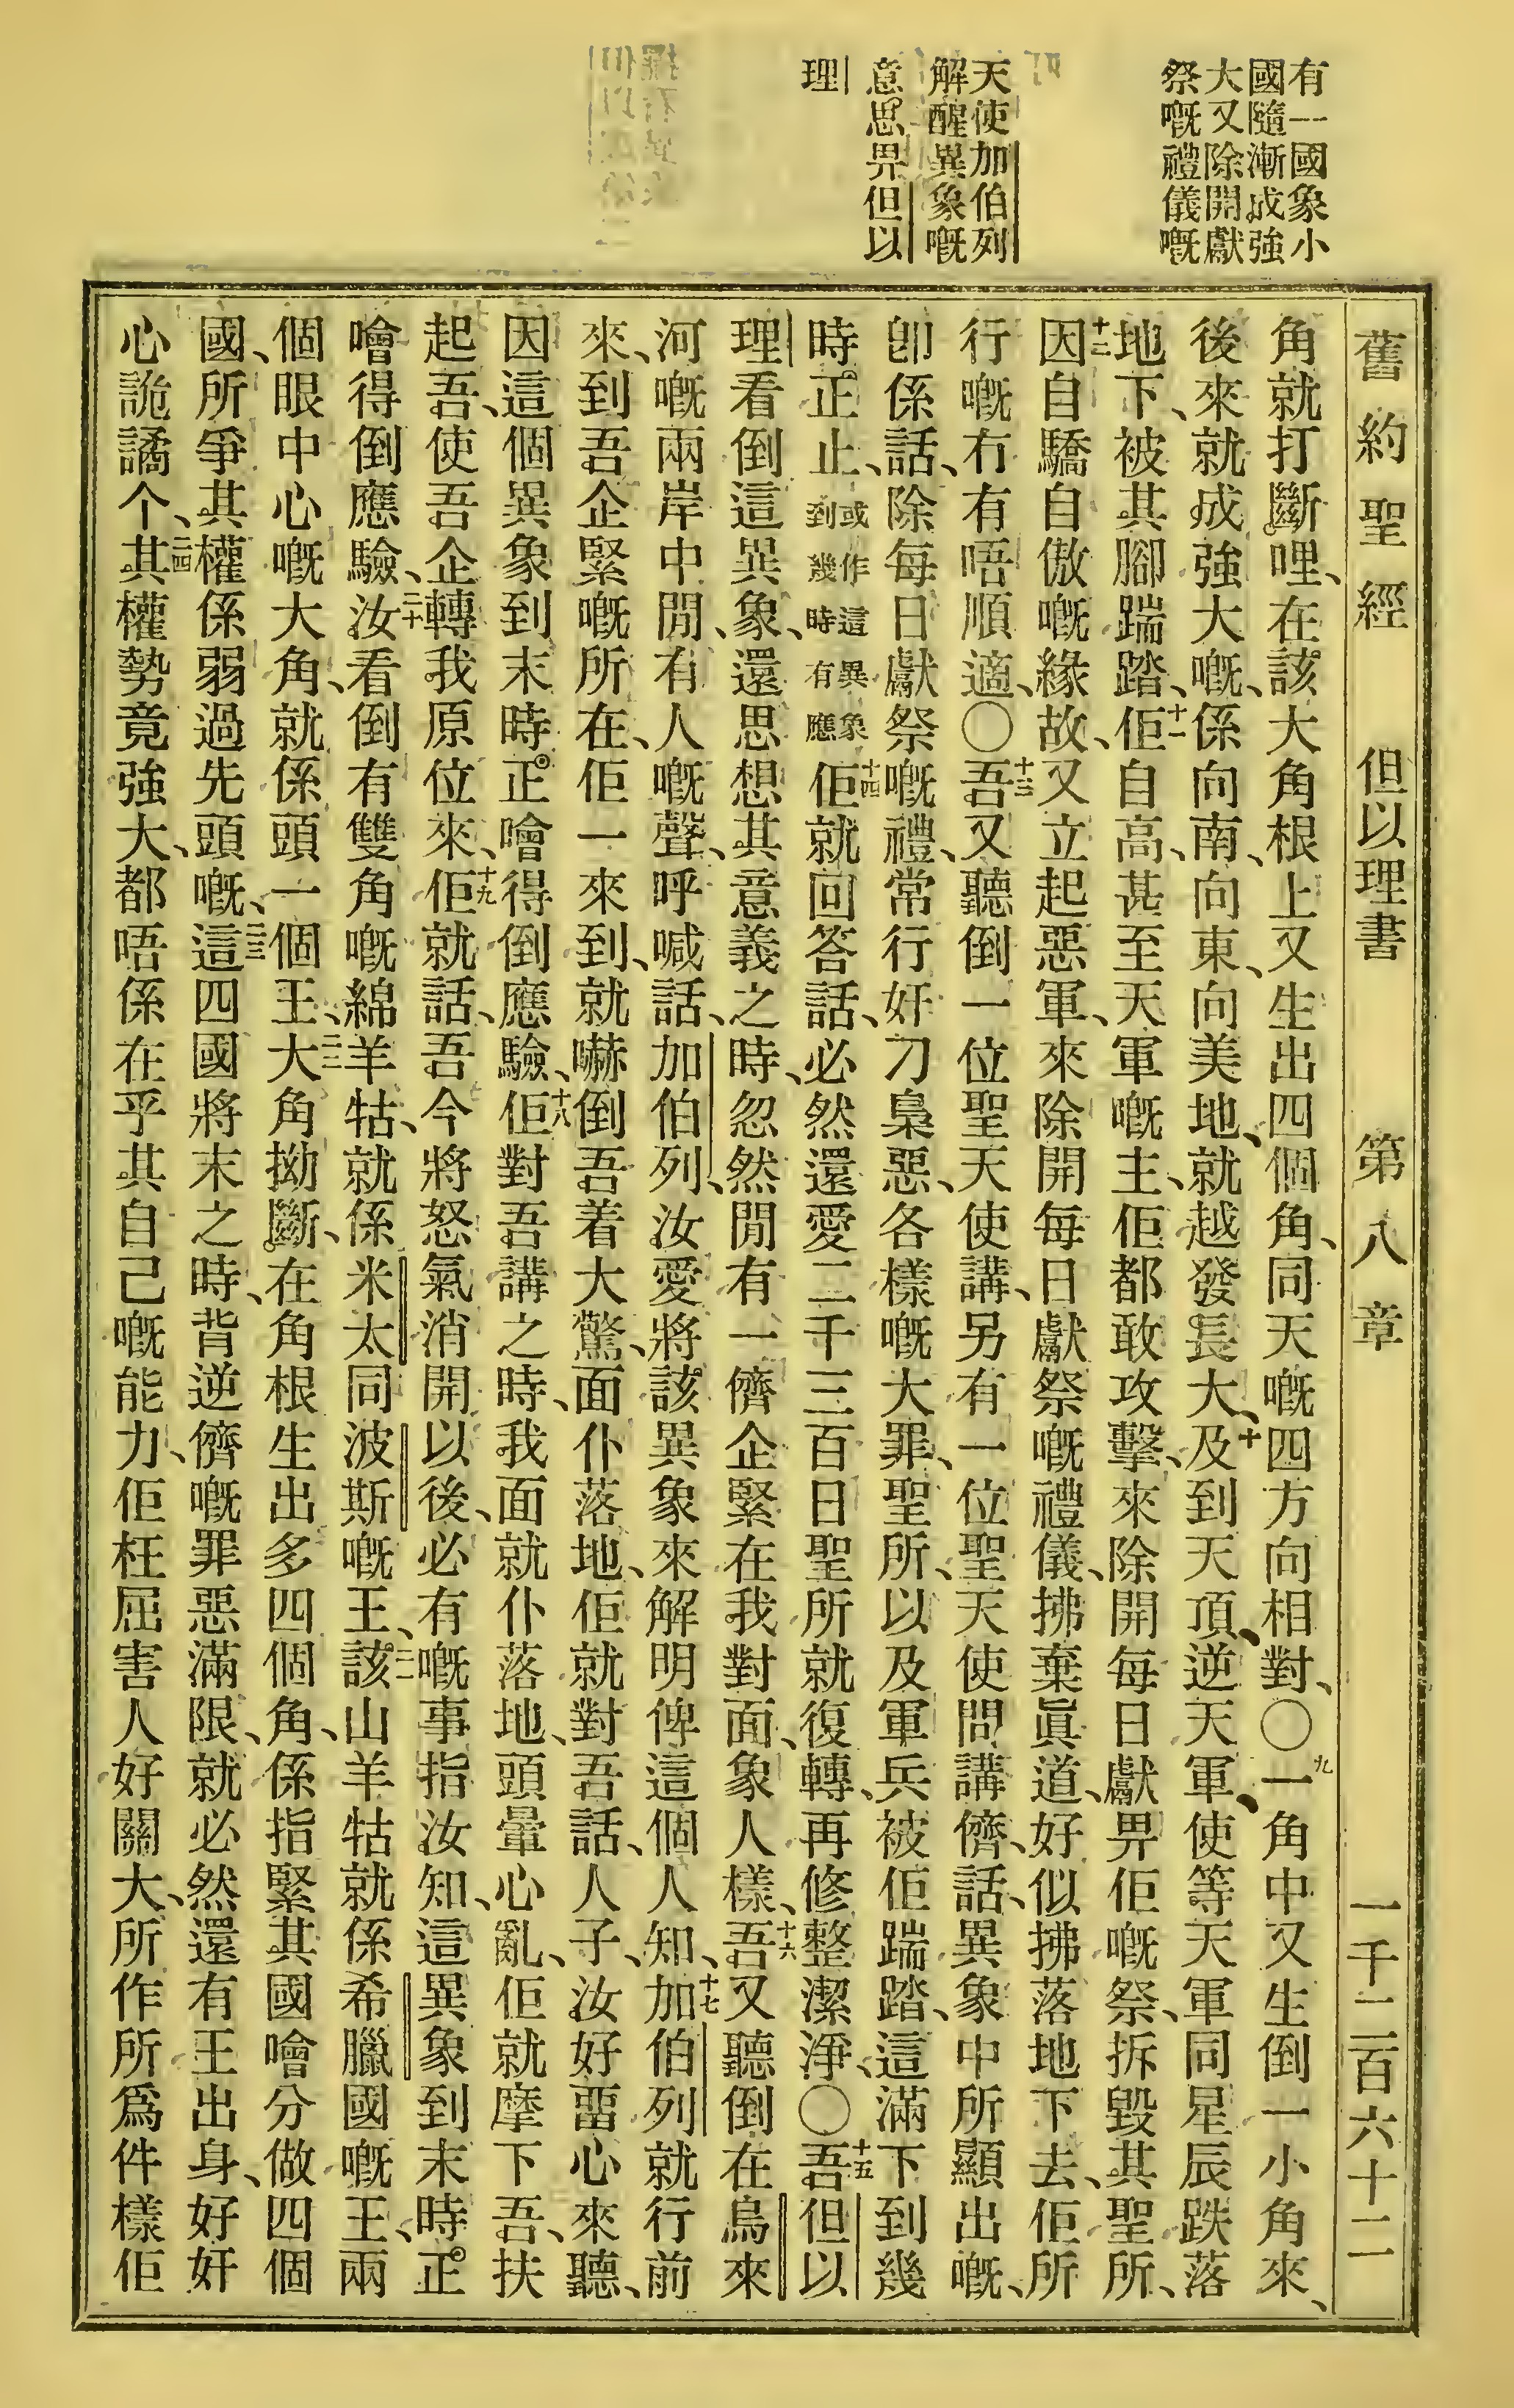 有一國象小
國隨漸成強
大又除開獻
祭嘅禮儀嘅
天使加伯列
解醒異象嘅
意思畀但以
理
舊約聖經 但以理書 第八章 一千二百六十二
角就打斷哩、在該大角根上又生出四個角、同天嘅四方向相對、〇九一角中又生倒一小角來、
後來就成強大嘅、係向南、向東、向美地、就越發長大、十及到天頂、逆天軍、使等天軍同星辰跌落
地下、被其腳踹踏、十一佢自高、甚至天軍嘅主、佢都敢攻擊、來除開每日獻畀佢嘅祭、拆毀其聖所、
十二因自驕自傲嘅緣故、又立起惡軍、來除開每日獻祭嘅禮儀、拂棄眞道、好似拂落地下去、佢所
行嘅冇有唔順適、〇十三吾又聽倒一位聖天使講、另有一位聖天使問講儕、話、異象中所顯出嘅、
卽係話、除每日獻祭嘅禮、常行奸刁梟惡、各樣嘅大罪、聖所、以及軍兵被佢踹踏、這滿下到幾
時正止、或作這異象到幾時有應十四佢就回答話、必然還愛二千三百日聖所就復轉、再修整潔淨、〇十五吾但以
理看倒這異象、還思想其意義之時、忽然閒有一儕企緊在我對面、象人樣、十六吾又聽倒在烏來
河嘅兩岸中閒、有人嘅聲、呼喊話、加伯列、汝愛將該異象來解明俾這個人知、十七加伯列就行前
來、到吾企緊嘅所在、佢一來到、就嚇倒吾着大驚、面仆落地、佢就對吾話、人子、汝好畱心來聽、
因這個異象到末時正噲得倒應驗、十八佢對吾講之時、我面就仆落地、頭暈心亂、佢就摩下吾、扶
起吾、使吾企轉我原位來、十九佢就話、吾今將怒氣消開以後、必有嘅事指汝知、這異象到末時正
噲得倒應驗、二十汝看倒有雙角嘅綿羊牯、就係米太同波斯嘅王、二一該山羊牯就係希臘國嘅王、兩
個眼中心嘅大角、就係頭一個王、二二大角拗斷、在角根生出多四個角、係指緊其國噲分做四個
國、所爭其權係弱過先頭嘅、二三這四國將末之時、背逆儕嘅罪惡滿限、就必然還有王出身、好奸
心詭譎个、二四其權勢竟強大、都唔係在乎其自己嘅能力、佢枉屈害人好關大、所作所爲件樣佢